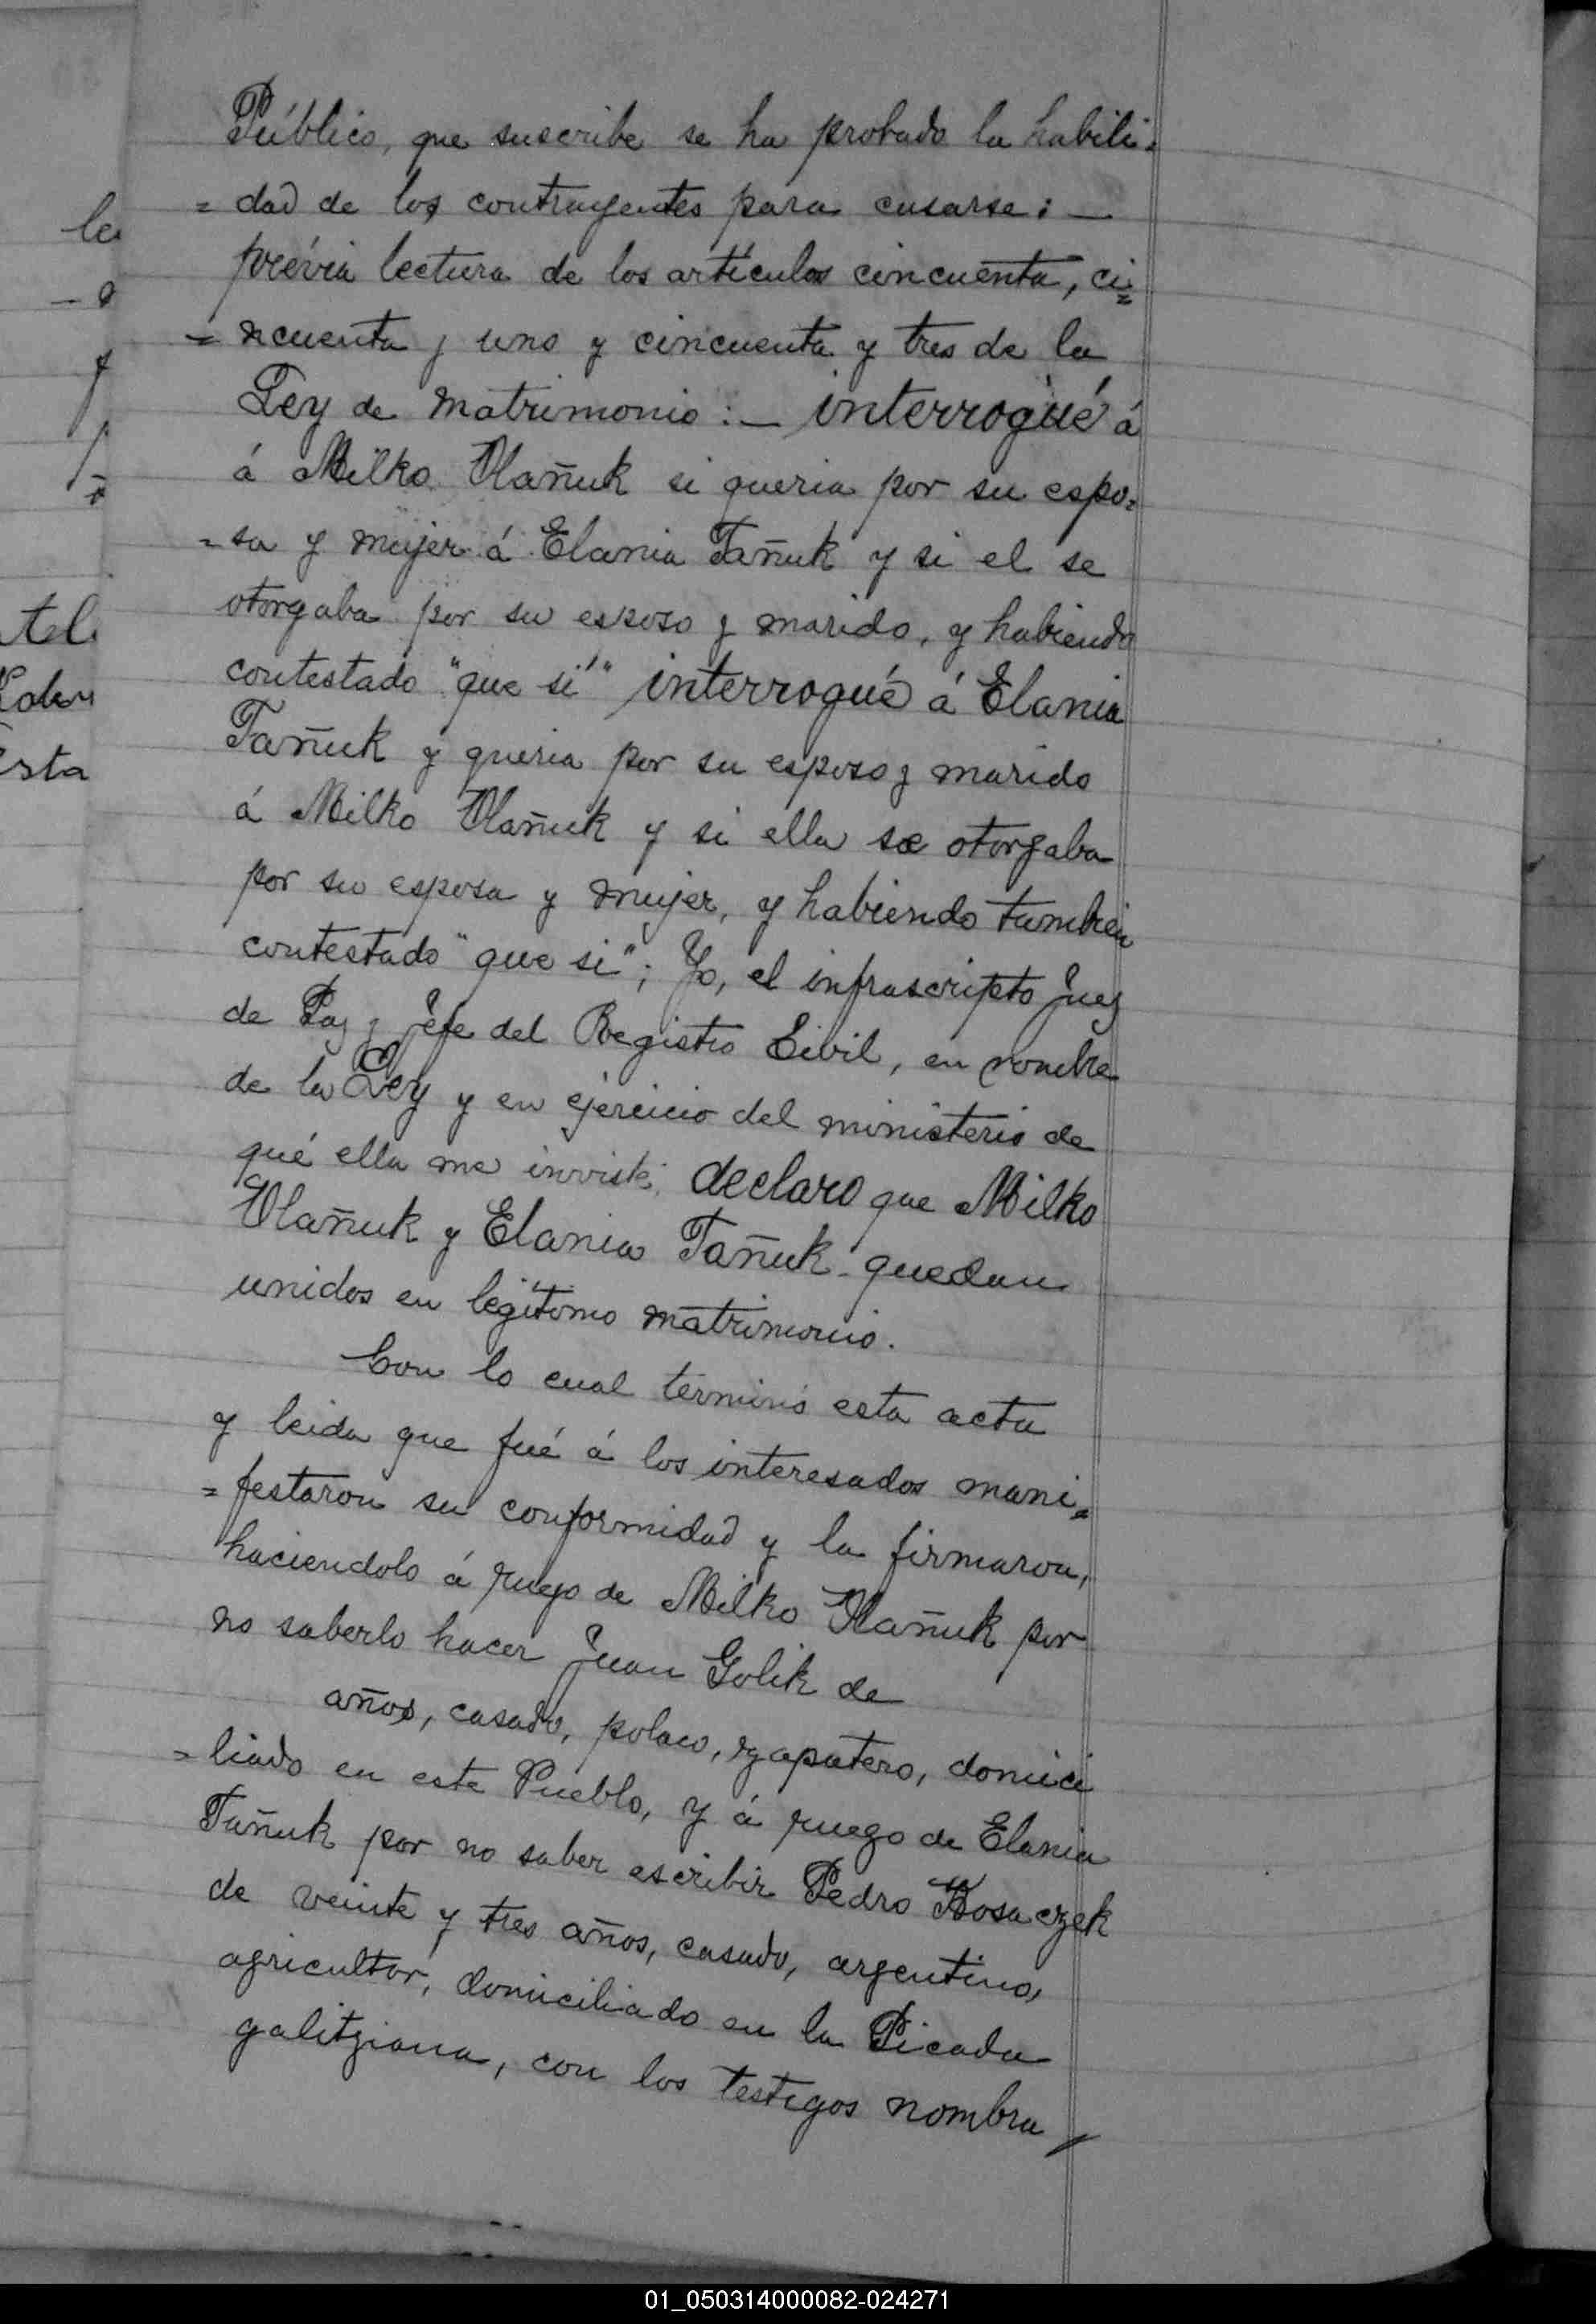 Público, que suscribe se ha probado la habili=
=dad de los contrayentes para casarse: —
prévia lectura de los artículos cincuenta, ci=
=ncuenta y uno y cincuenta y tres de la
Ley de matrimonio: — interrogué á
á Milko Vlañuk si queria por su espo=
=sa y mujer á Elania Tañuk y si el se
otorgaba por su esposo y marido, y habiendo
contestado "que si" interrogué á Elania
Tañuk y queria por su esposo y marido
á Milko Vlañuk y si ella se otorgaba
por su esposa y mujer, y habiendo tambien
contestado "que si"; Yo, el infrascripto Juez
de Paz y Jefe del Registro Civil, en nombre
de la Ley y en ejercicio del ministerio de
qué ella me inviste, declaro que Milko
Vlañuk y Elania Tañuk quedan
unidos en legítimo matrimonio.
Con lo cual terminó esta acta
y leida que fué á los interesados mani=
=festaron su conformidad y la firmaron,
haciendolo á ruego de Milko Vlañuk por
no saberlo hacer Juan Golik de
años, casado, polaco, zapatero, domici
=liado en este Pueblo, y á ruego de Elania
Tañuk por no saber escribir Pedro Kosaczek
de veinte y tres años, casado, argentino,
agricultor, domiciliado en la Picada
galitziana, con los testigos nombra
le
tel
esta
01_050314000082-024271